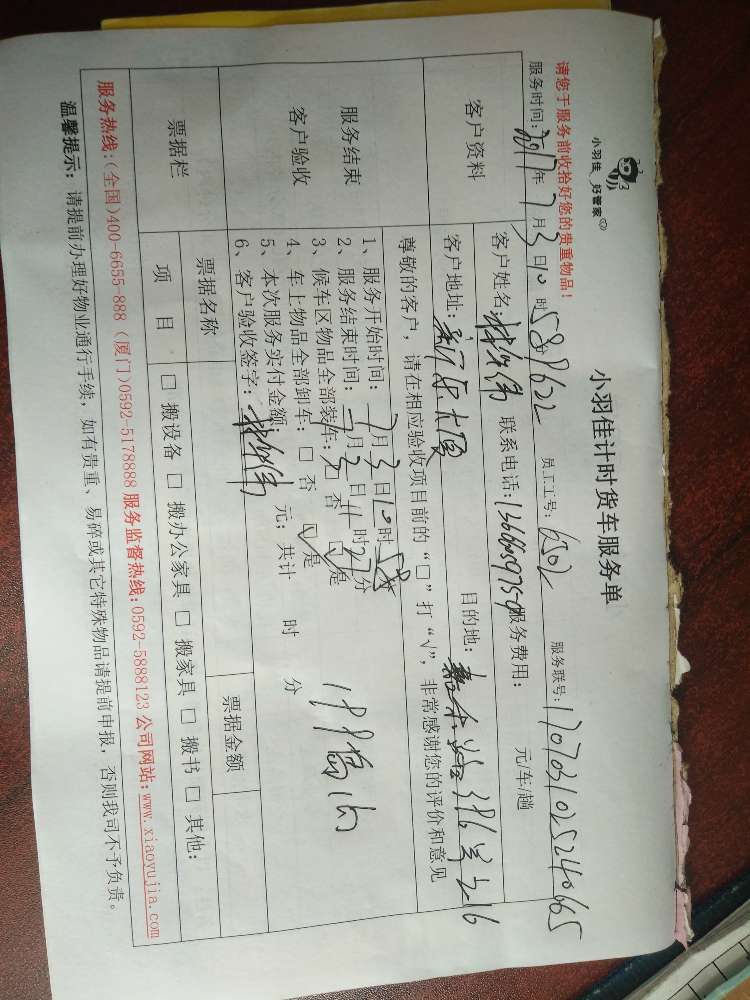 小羽佳 好管家
小羽佳计时货车服务单
请您于服务前收拾好您的贵重物品!
服务时间:2017年7月3日10时58分 员工工号:6502 服务联号:1707031025240665
客户资料
客户姓名: 联系电话:13666059759 服务费用: 元/车/趟
客户地址: 目的地:
服务结束
客户验收
尊敬的客户,请在相应验收项目前的“□”打“√”,非常感谢您的评价和意见
1、服务开始时间:7月3日10时58分
2、服务结束时间:7月3日11时22分
3、候车区物品全部装车:□ 否 ☑是
4、车上物品全部卸车:□ 否 ☑是
5、本次服务实付金额: 元;共计 时 分
6、客户验收签字:
票据栏
票据名称 票据金额
项 目 □ 搬设备 □ 搬办公家具 □ 搬家具 □ 搬书 □ 其他:
服务热线:(全国)400-6655-888 (厦门)0592-5178888 服务监督热线:0592-5888123 公司网站:www.xiaoyujia.com
温馨提示:请提前办理好物业通行手续,如有贵重、易碎或其它特殊物品请提前申报,否则我司不予负责。